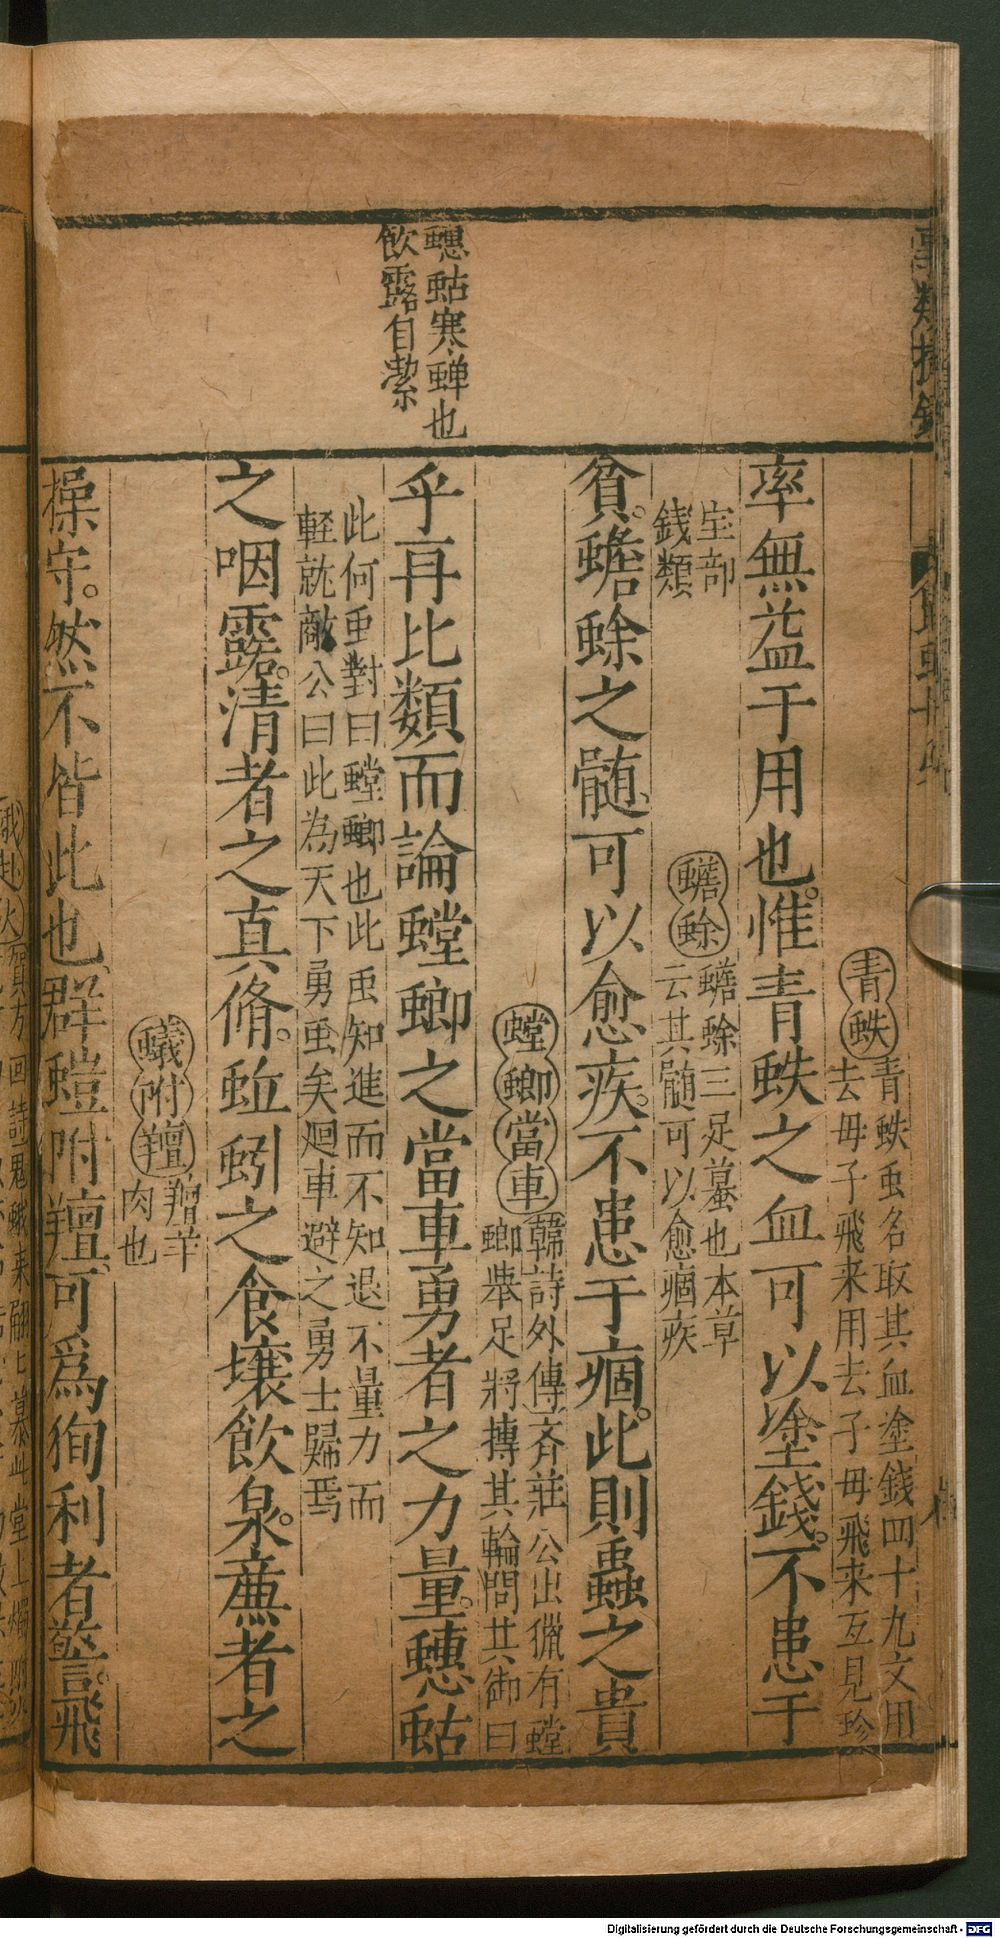 蟪蛄寒蟬也
飲露自潔
青蚨
青蚨䖝名取其血塗錢四十九文用
去母子飛来用去子母飛来互見珍
率無益于用也惟青蚨之血可以塗錢不患于
宝部
錢類
蟾蜍
蟾蜍三足蟇也本草
云其髄可以愈痼疾
貧蟾蜍之髄可以愈疾不患于痼此則蟲之貴
螳螂當車
韓詩外傳齐莊公出獵有螳
螂舉足將搏其輪問其御曰
乎再比類而論螳螂之當車勇者之力量蟪蛄
此何䖝對曰螳螂也此䖝知進而不知退不量力而
軽就敵公曰此為天下勇䖝矣廻車避之勇士歸焉
之咽露清者之真脩蚯蚓之食壤飲泉廉者之
蟻附羶
羶羊
肉也
操守然不皆此也群螘附羶可爲狥利者警飛
Digitalisierung gefördert durch die Deutsche Forschungsgemeinschaft - DFG